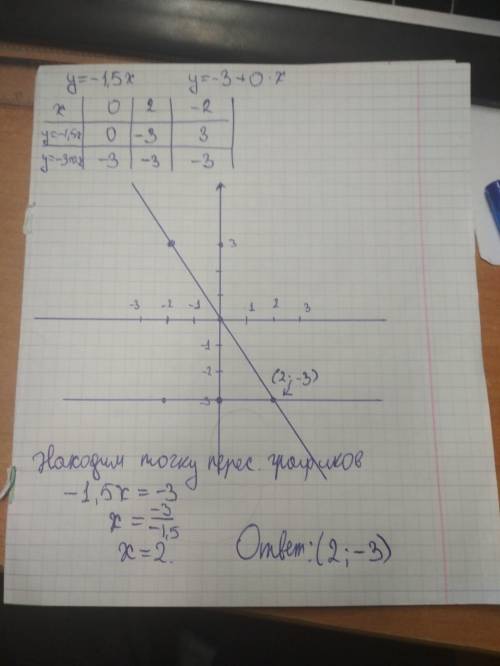 y=-1,5x y=-3+0·x
x 0 2 -2
y=-1,5x 0 -3 3
y=-3+0x -3 -3 -3
3
-3 -2 -1 1 2 3
-1
-2
(2;-3)
-3
Находим точку перес. графиков
-1,5x = -3
x = -3/-1,5
x = 2.
Ответ: (2;-3)